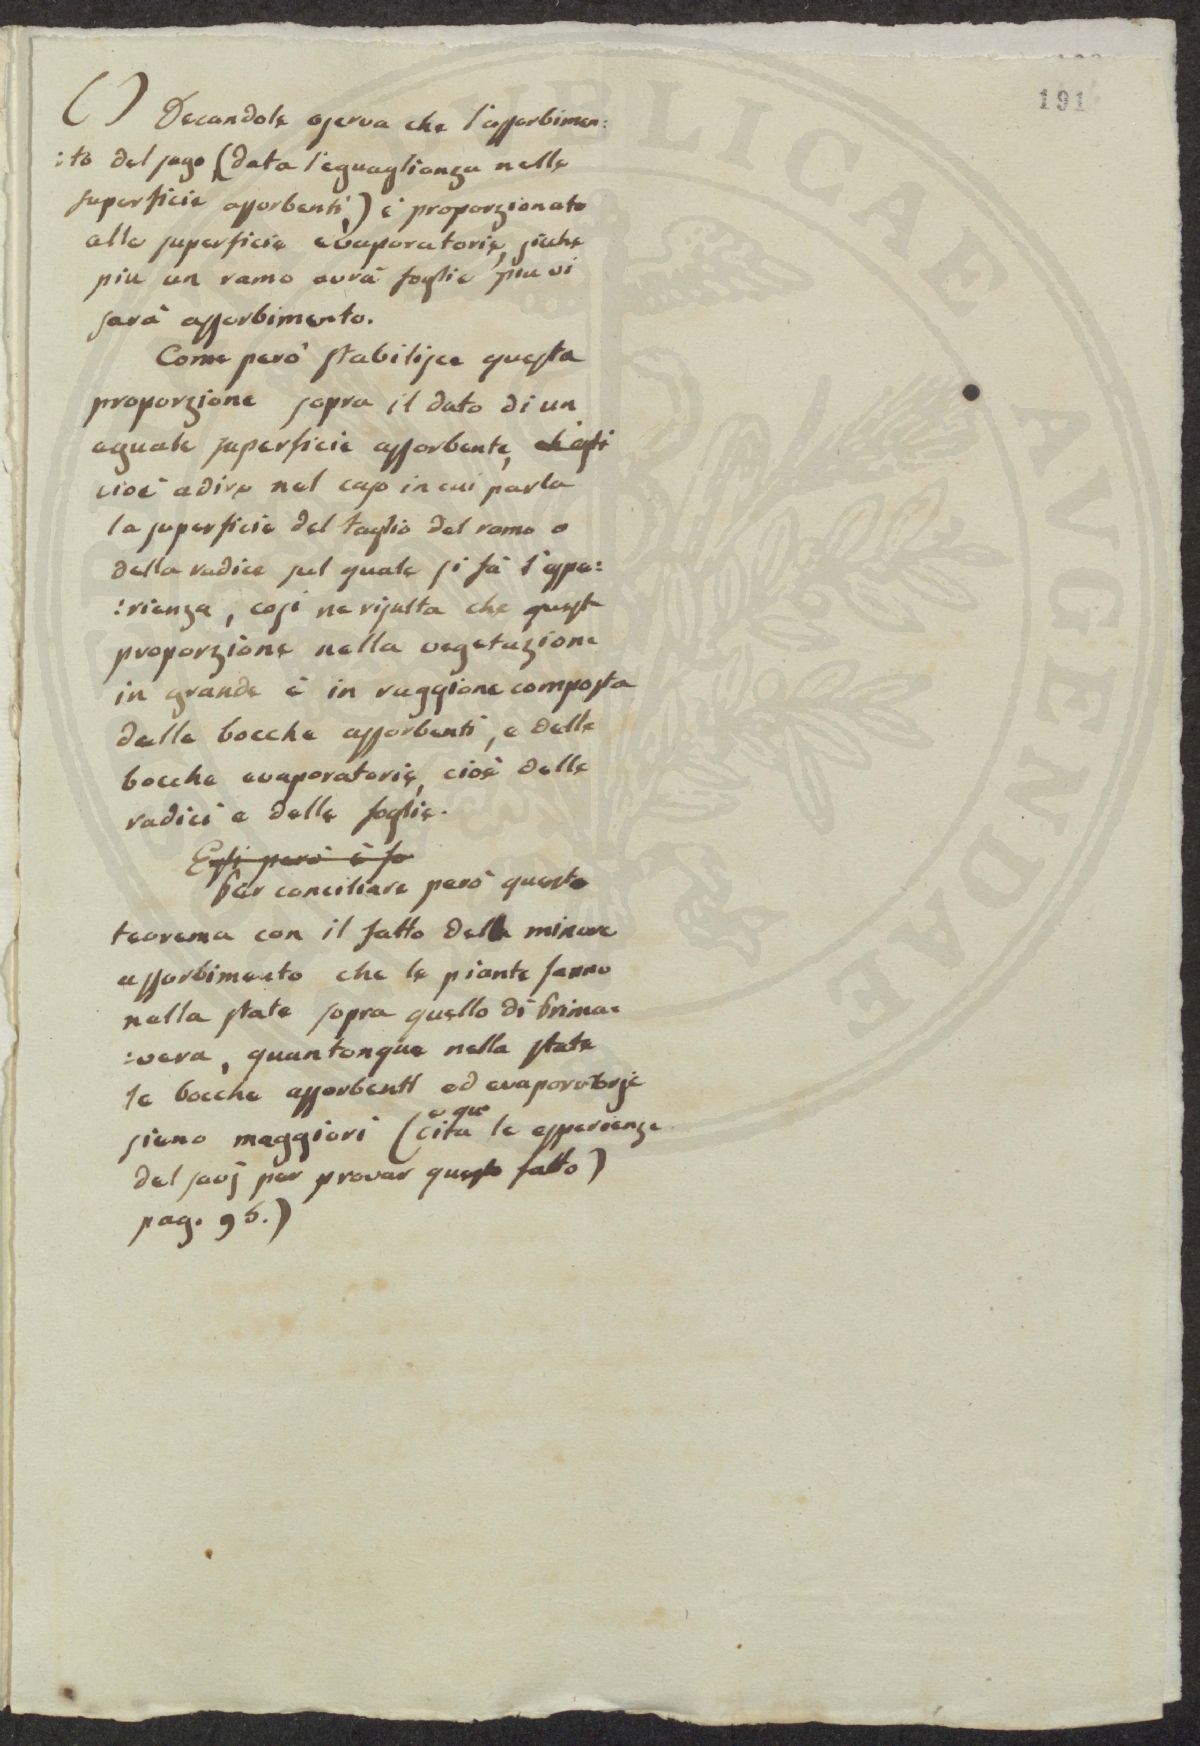 191
( ) Decandole osserva che l'assorbimen:
:to del sugo (data l'eguaglianza nelle
superficie assorbenti) è proporzionato
alle superficie evaporatorie, siche
piu un ramo avrà foglie piu vi
sarà assorbimento.
Come però stabilisce questa
proporzione sopra il dato di un
eguale superficie assorbente,
cioè adire nel caso in cui parla
la superficie del taglio del ramo o
della radice sul quale si fà l'espe:
:rienza, così ne risulta che questa
proporzione nella vegetazione
in grande è in raggione composta
delle bocche assorbenti, e delle
bocche evaporatorie, cioè delle
radici e delle foglie.
Egli però è so
Per conciliare però questo
teorema con il fatto della minore
assorbimento che le piante fanno
nella state sopra quello di Prima:
:vera, quantonque nella state
le bocche assorbenti ed evaporatorie
sieno maggiori (e quì cita le esperienze
del savj per provar questo fatto)
pag. 95.)
VELICAE AVGENDAE